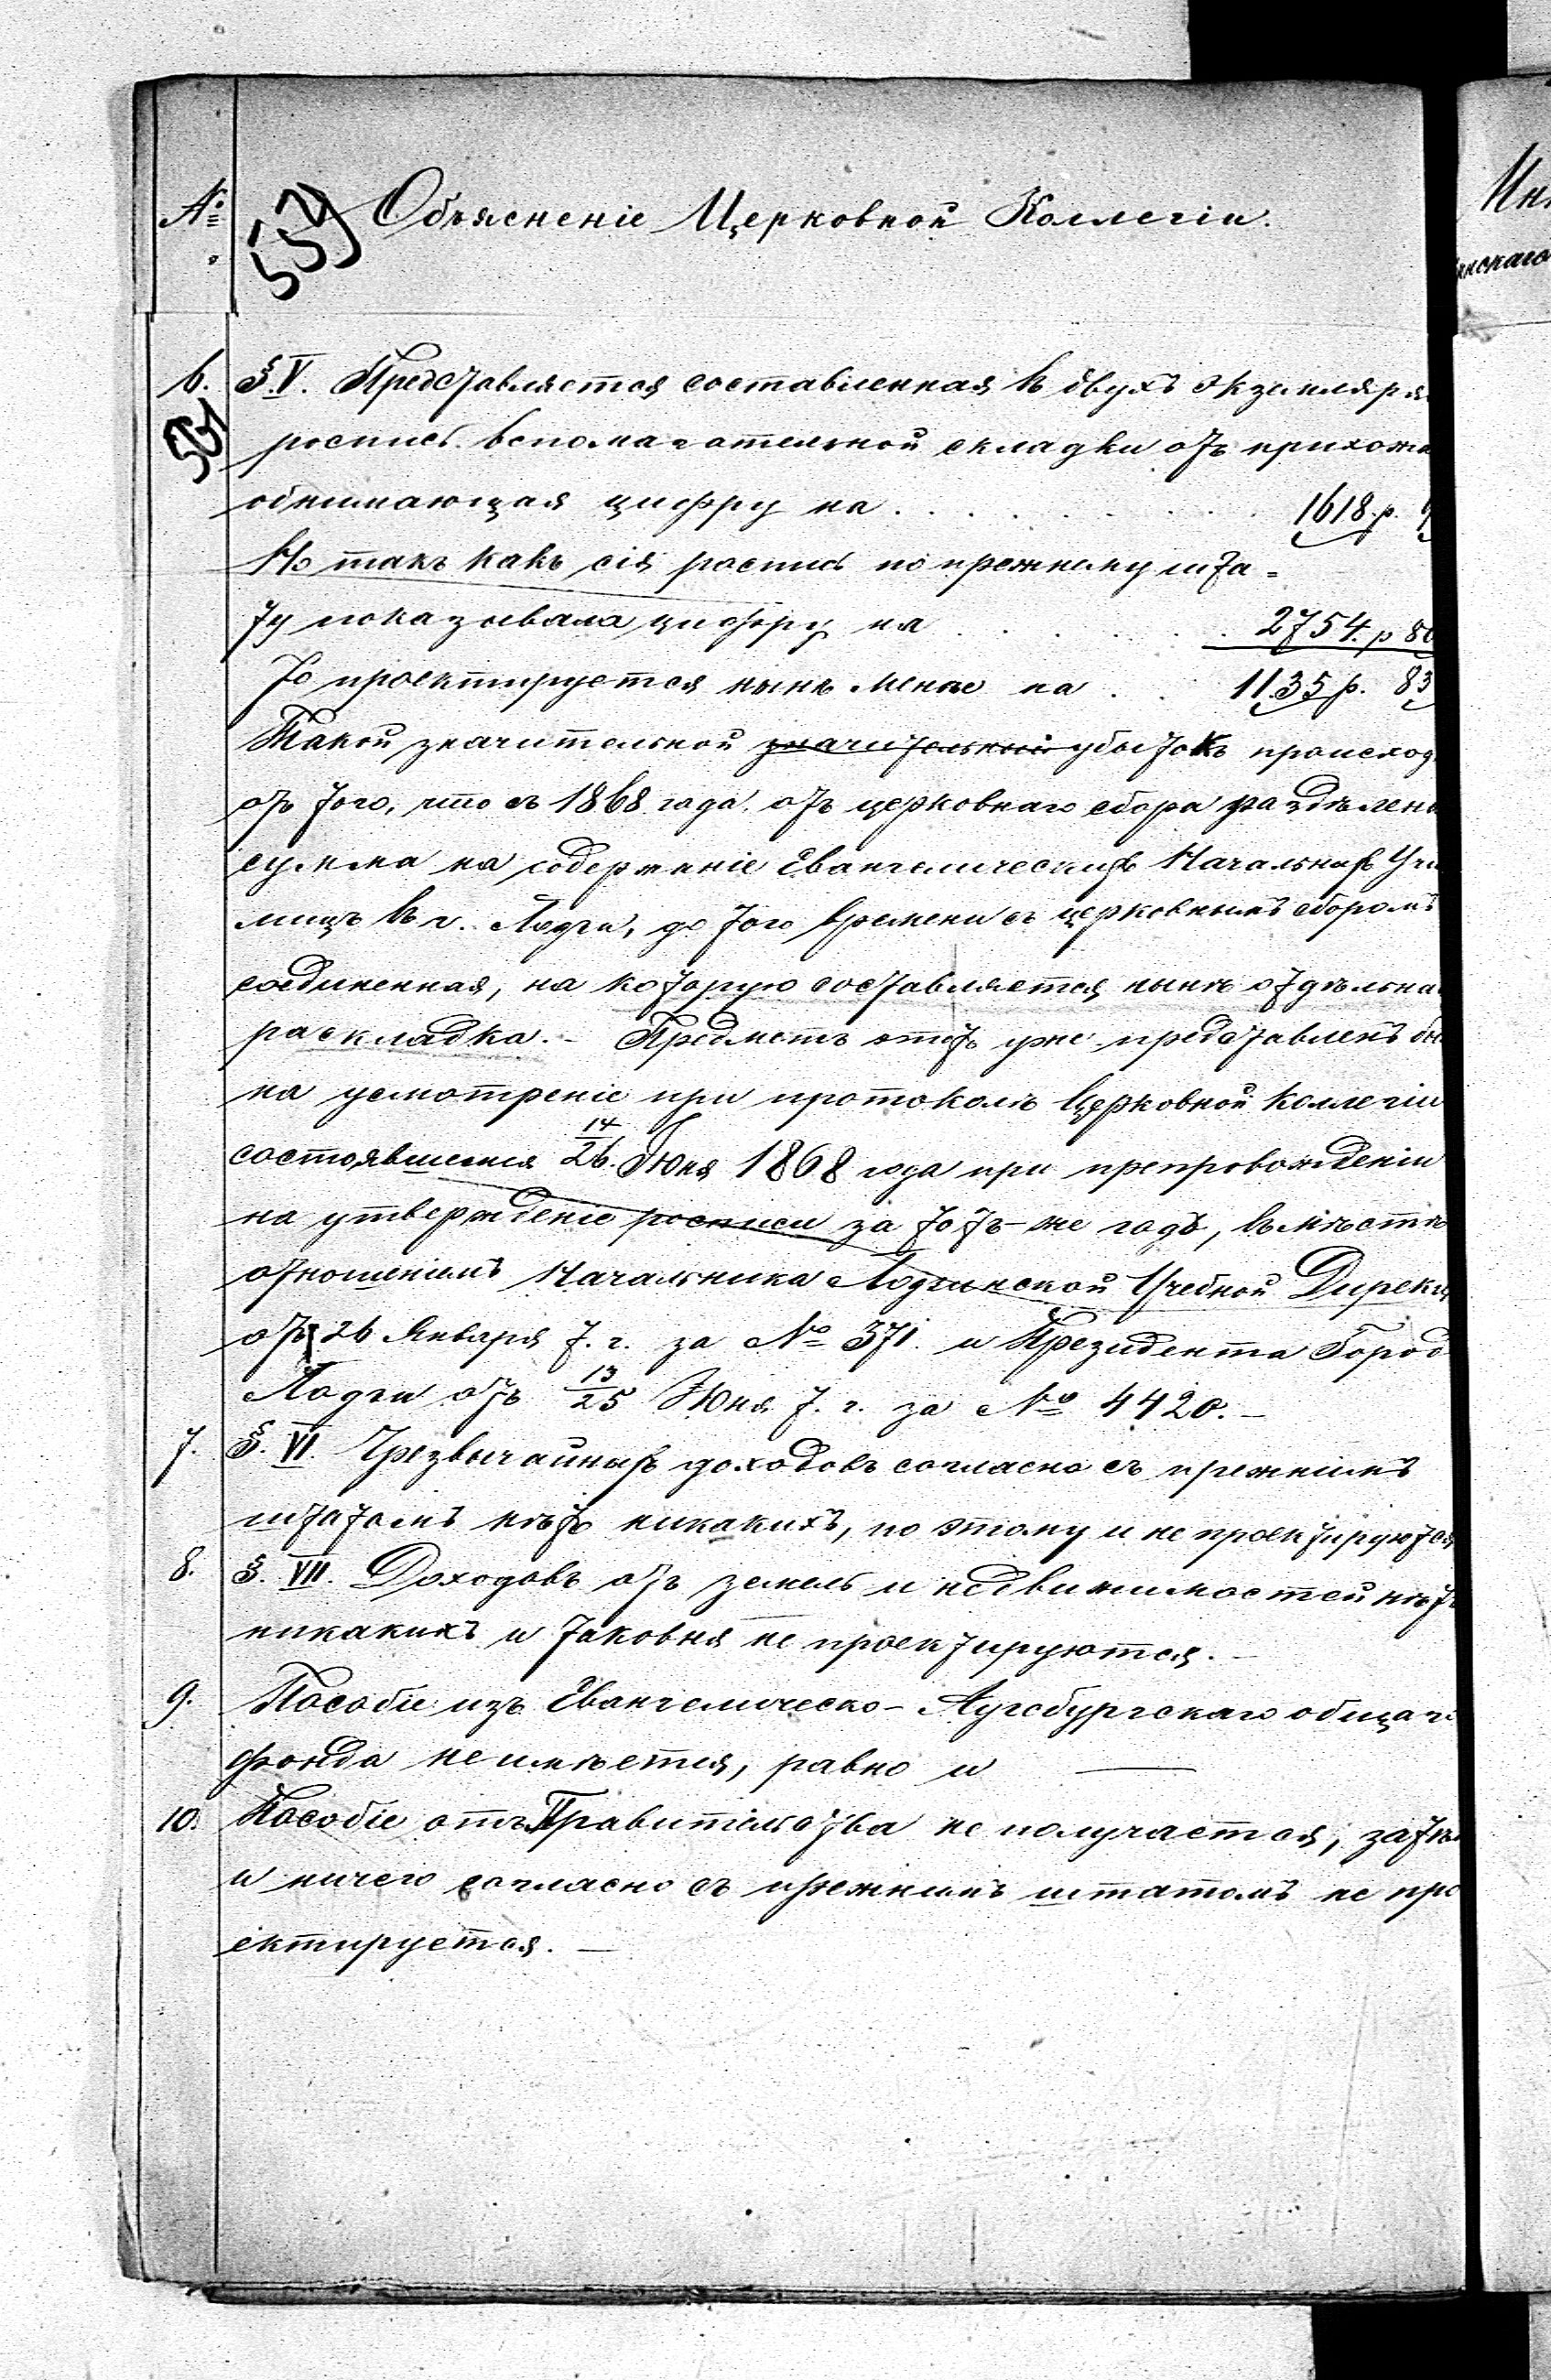 № Объясненіе Церковной Коллегіи.
6. §. V. Представляется составленная въ двухъ экземпляра
росписъ вспомагательной складки отъ прихожа
обнимающая цифру на . . . . . . . 1618. р.
Но такъ какъ сія роспись по прежнему шта=
ту показывала цифру на . . . . . . 2754. р 80
То проектируется нынѣ менѣе на . . 1135 р. 83
Такой значительной значительный убытокъ происход
отъ того, что съ 1868 года отъ церковнаго сбора раздѣлен
сумма на содержаніе Евангелическихъ Начальныхъ Учи
лищъ въ г. Лодзи, до того времени съ церковнымъ сборомъ
соединенная, на которую составляется нынѣ отдѣльна
раскладка. – Предметъ этотъ уже представленъ бы
на усмотреніе при протоколѣ Церковной Коллегіи
состоявшемся 14/26. Іюня 1868 года при препровожденіи
на утвержденіе росписи за тотъ-же годъ, вмѣстѣ
отношеніемъ Начальника Лодзинской Учебной Дирекц
отъ 26 Января т. г. за № 371. и Президента Город
Лодзи отъ 13/25 Іюня т. г. за № 4420. –
7. §. VI. Чрезвычайныхъ доходовъ согласно съ прежнимъ
штатомъ нѣтъ никакихъ, по этому и не проектируются
8. §. VII. Доходовъ отъ земель и недвижимостей нѣтъ
никакихъ и таковыя не проектируются. –
9. Пособіе изъ Евангелическо-Аугсбургскаго общаг
фонда не имѣется, равно и —
10. Пособіе отъ Правительства не получается, затѣм
и ничего согласно съ прежнимъ штатомъ не про
ектируется. —